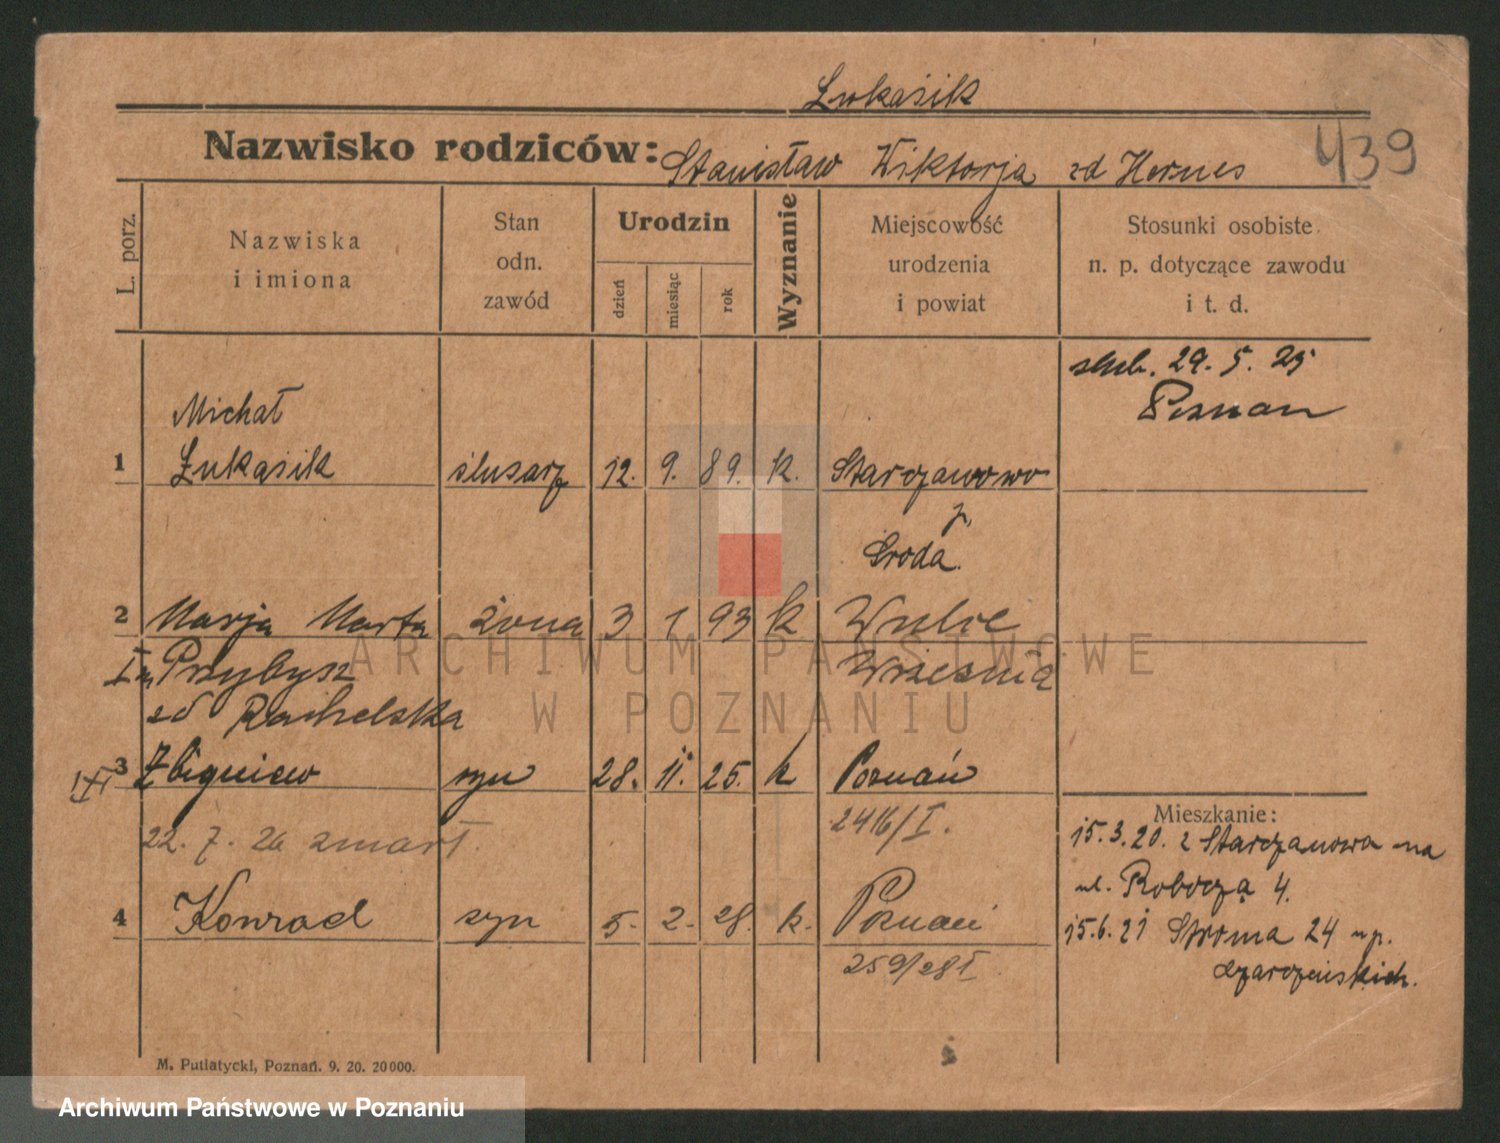 Łukasik
Nazwisko rodziców: Stanisław Wiktorja zd Hermes
439
L. porz.
Nazwiska
i imiona
Stan
odn.
zawód
Urodzin
dzień
miesiąc
rok
Wyznanie
Miejscowość
urodzenia
i powiat
Stosunki osobiste
n. p. dotyczące zawodu
i t. d.
ślub. 29. 5. 25
Poznan
Michał
1 Łukasik ślusarz 12. 9. 89. k. Starczanowo
p.
Sroda.
2 Marja Marta żona 3 1 93 k Wulce
Przybysz Września
zd
3 Zbigniew syn 28. 11. 25. k Poznań
22. 7. 26 zmarł. 2416/I.
4 Konrad syn 5. 2. 28. k. Poznań
259/28 I
Mieszkanie:
15.3.20. z Starczanowa na
ul. Roboczą 4.
15.6.21 Stroma 24 np.
M. Putiatycki, Poznań. 9. 20. 20000.
ARCHIWUM PAŃSTWOWE
W POZNANIU
Archiwum Państwowe w Poznaniu